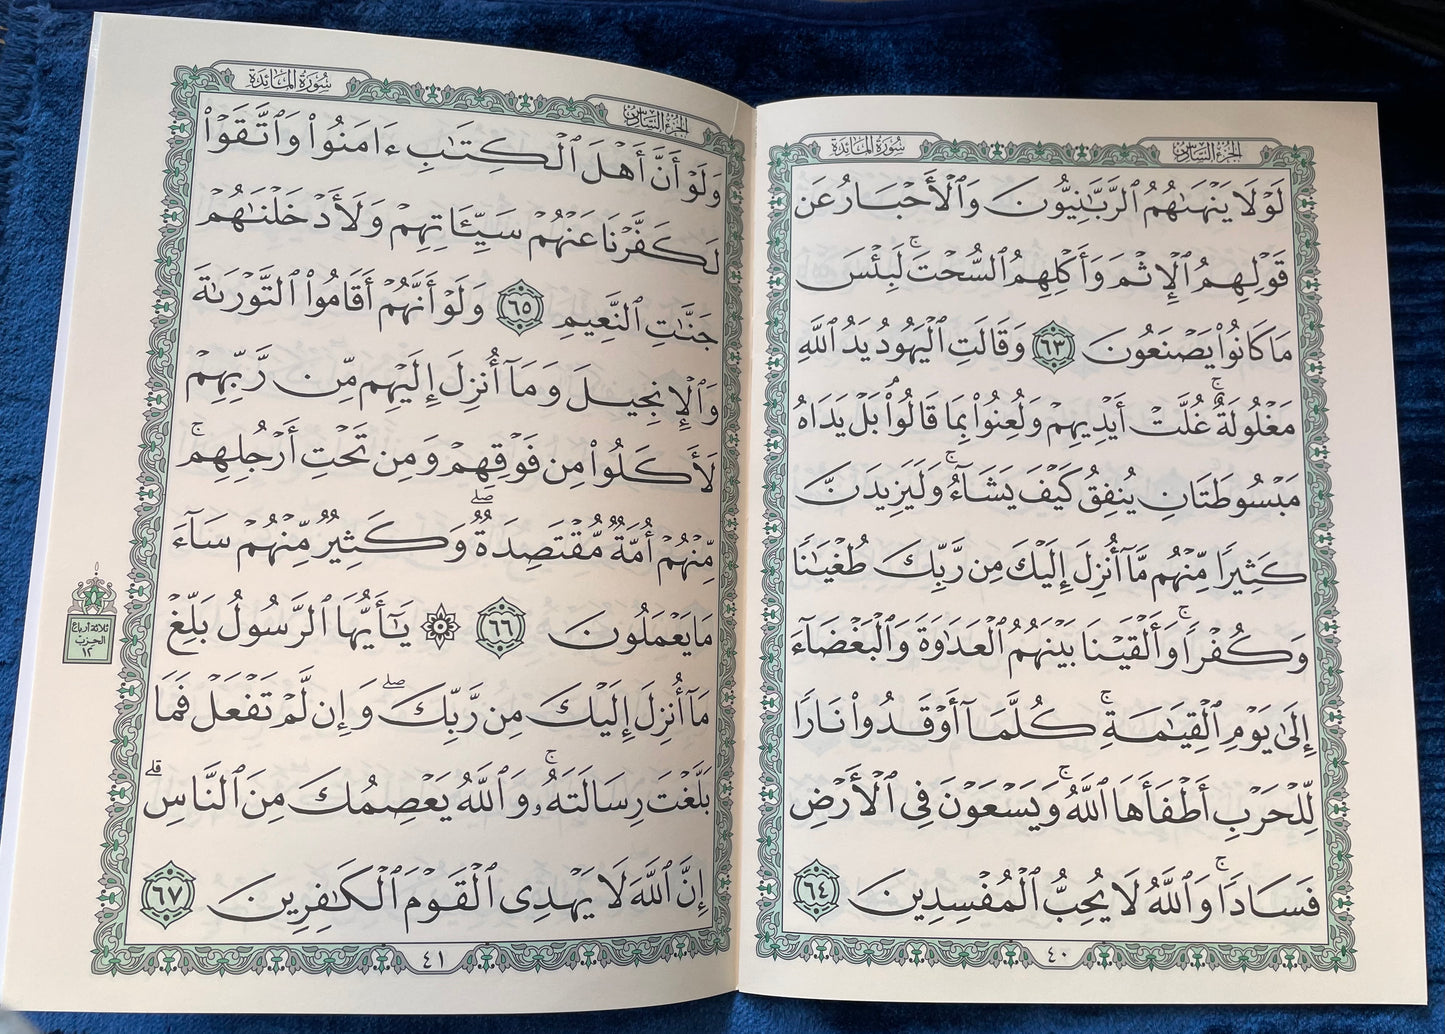 الجزء السادس
سُورَةُ المَائِدَة
لَوۡلَا يَنۡهَىٰهُمُ ٱلرَّبَّٰنِيُّونَ وَٱلۡأَحۡبَارُ عَن
قَوۡلِهِمُ ٱلۡإِثۡمَ وَأَكۡلِهِمُ ٱلسُّحۡتَۚ لَبِئۡسَ
مَا كَانُواْ يَصۡنَعُونَ ٦٣ وَقَالَتِ ٱلۡيَهُودُ يَدُ ٱللَّهِ
مَغۡلُولَةٌۚ غُلَّتۡ أَيۡدِيهِمۡ وَلُعِنُواْ بِمَا قَالُواْۘ بَلۡ يَدَاهُ
مَبۡسُوطَتَانِ يُنفِقُ كَيۡفَ يَشَآءُۚ وَلَيَزِيدَنَّ
كَثِيرٗا مِّنۡهُم مَّآ أُنزِلَ إِلَيۡكَ مِن رَّبِّكَ طُغۡيَٰنٗا
وَكُفۡرٗاۚ وَأَلۡقَيۡنَا بَيۡنَهُمُ ٱلۡعَدَٰوَةَ وَٱلۡبَغۡضَآءَ
إِلَىٰ يَوۡمِ ٱلۡقِيَٰمَةِۚ كُلَّمَآ أَوۡقَدُواْ نَارٗا
لِّلۡحَرۡبِ أَطۡفَأَهَا ٱللَّهُۚ وَيَسۡعَوۡنَ فِي ٱلۡأَرۡضِ
فَسَادٗاۚ وَٱللَّهُ لَا يُحِبُّ ٱلۡمُفۡسِدِينَ ٦٤
٤٠
الجزء السادس
سُورَةُ المَائِدَة
وَلَوۡ أَنَّ أَهۡلَ ٱلۡكِتَٰبِ ءَامَنُواْ وَٱتَّقَوۡاْ
لَكَفَّرۡنَا عَنۡهُمۡ سَيِّـَٔاتِهِمۡ وَلَأَدۡخَلۡنَٰهُمۡ
جَنَّٰتِ ٱلنَّعِيمِ ٦٥ وَلَوۡ أَنَّهُمۡ أَقَامُواْ ٱلتَّوۡرَىٰةَ
وَٱلۡإِنجِيلَ وَمَآ أُنزِلَ إِلَيۡهِم مِّن رَّبِّهِمۡ
لَأَكَلُواْ مِن فَوۡقِهِمۡ وَمِن تَحۡتِ أَرۡجُلِهِمۚ
مِّنۡهُمۡ أُمَّةٞ مُّقۡتَصِدَةٞۖ وَكَثِيرٞ مِّنۡهُمۡ سَآءَ
مَا يَعۡمَلُونَ ٦٦ ۞ يَٰٓأَيُّهَا ٱلرَّسُولُ بَلِّغۡ
مَآ أُنزِلَ إِلَيۡكَ مِن رَّبِّكَۖ وَإِن لَّمۡ تَفۡعَلۡ فَمَا
بَلَّغۡتَ رِسَالَتَهُۥۚ وَٱللَّهُ يَعۡصِمُكَ مِنَ ٱلنَّاسِۗ
إِنَّ ٱللَّهَ لَا يَهۡدِي ٱلۡقَوۡمَ ٱلۡكَٰفِرِينَ ٦٧
ثلاثة أرباع
الحزب
١٢
٤١